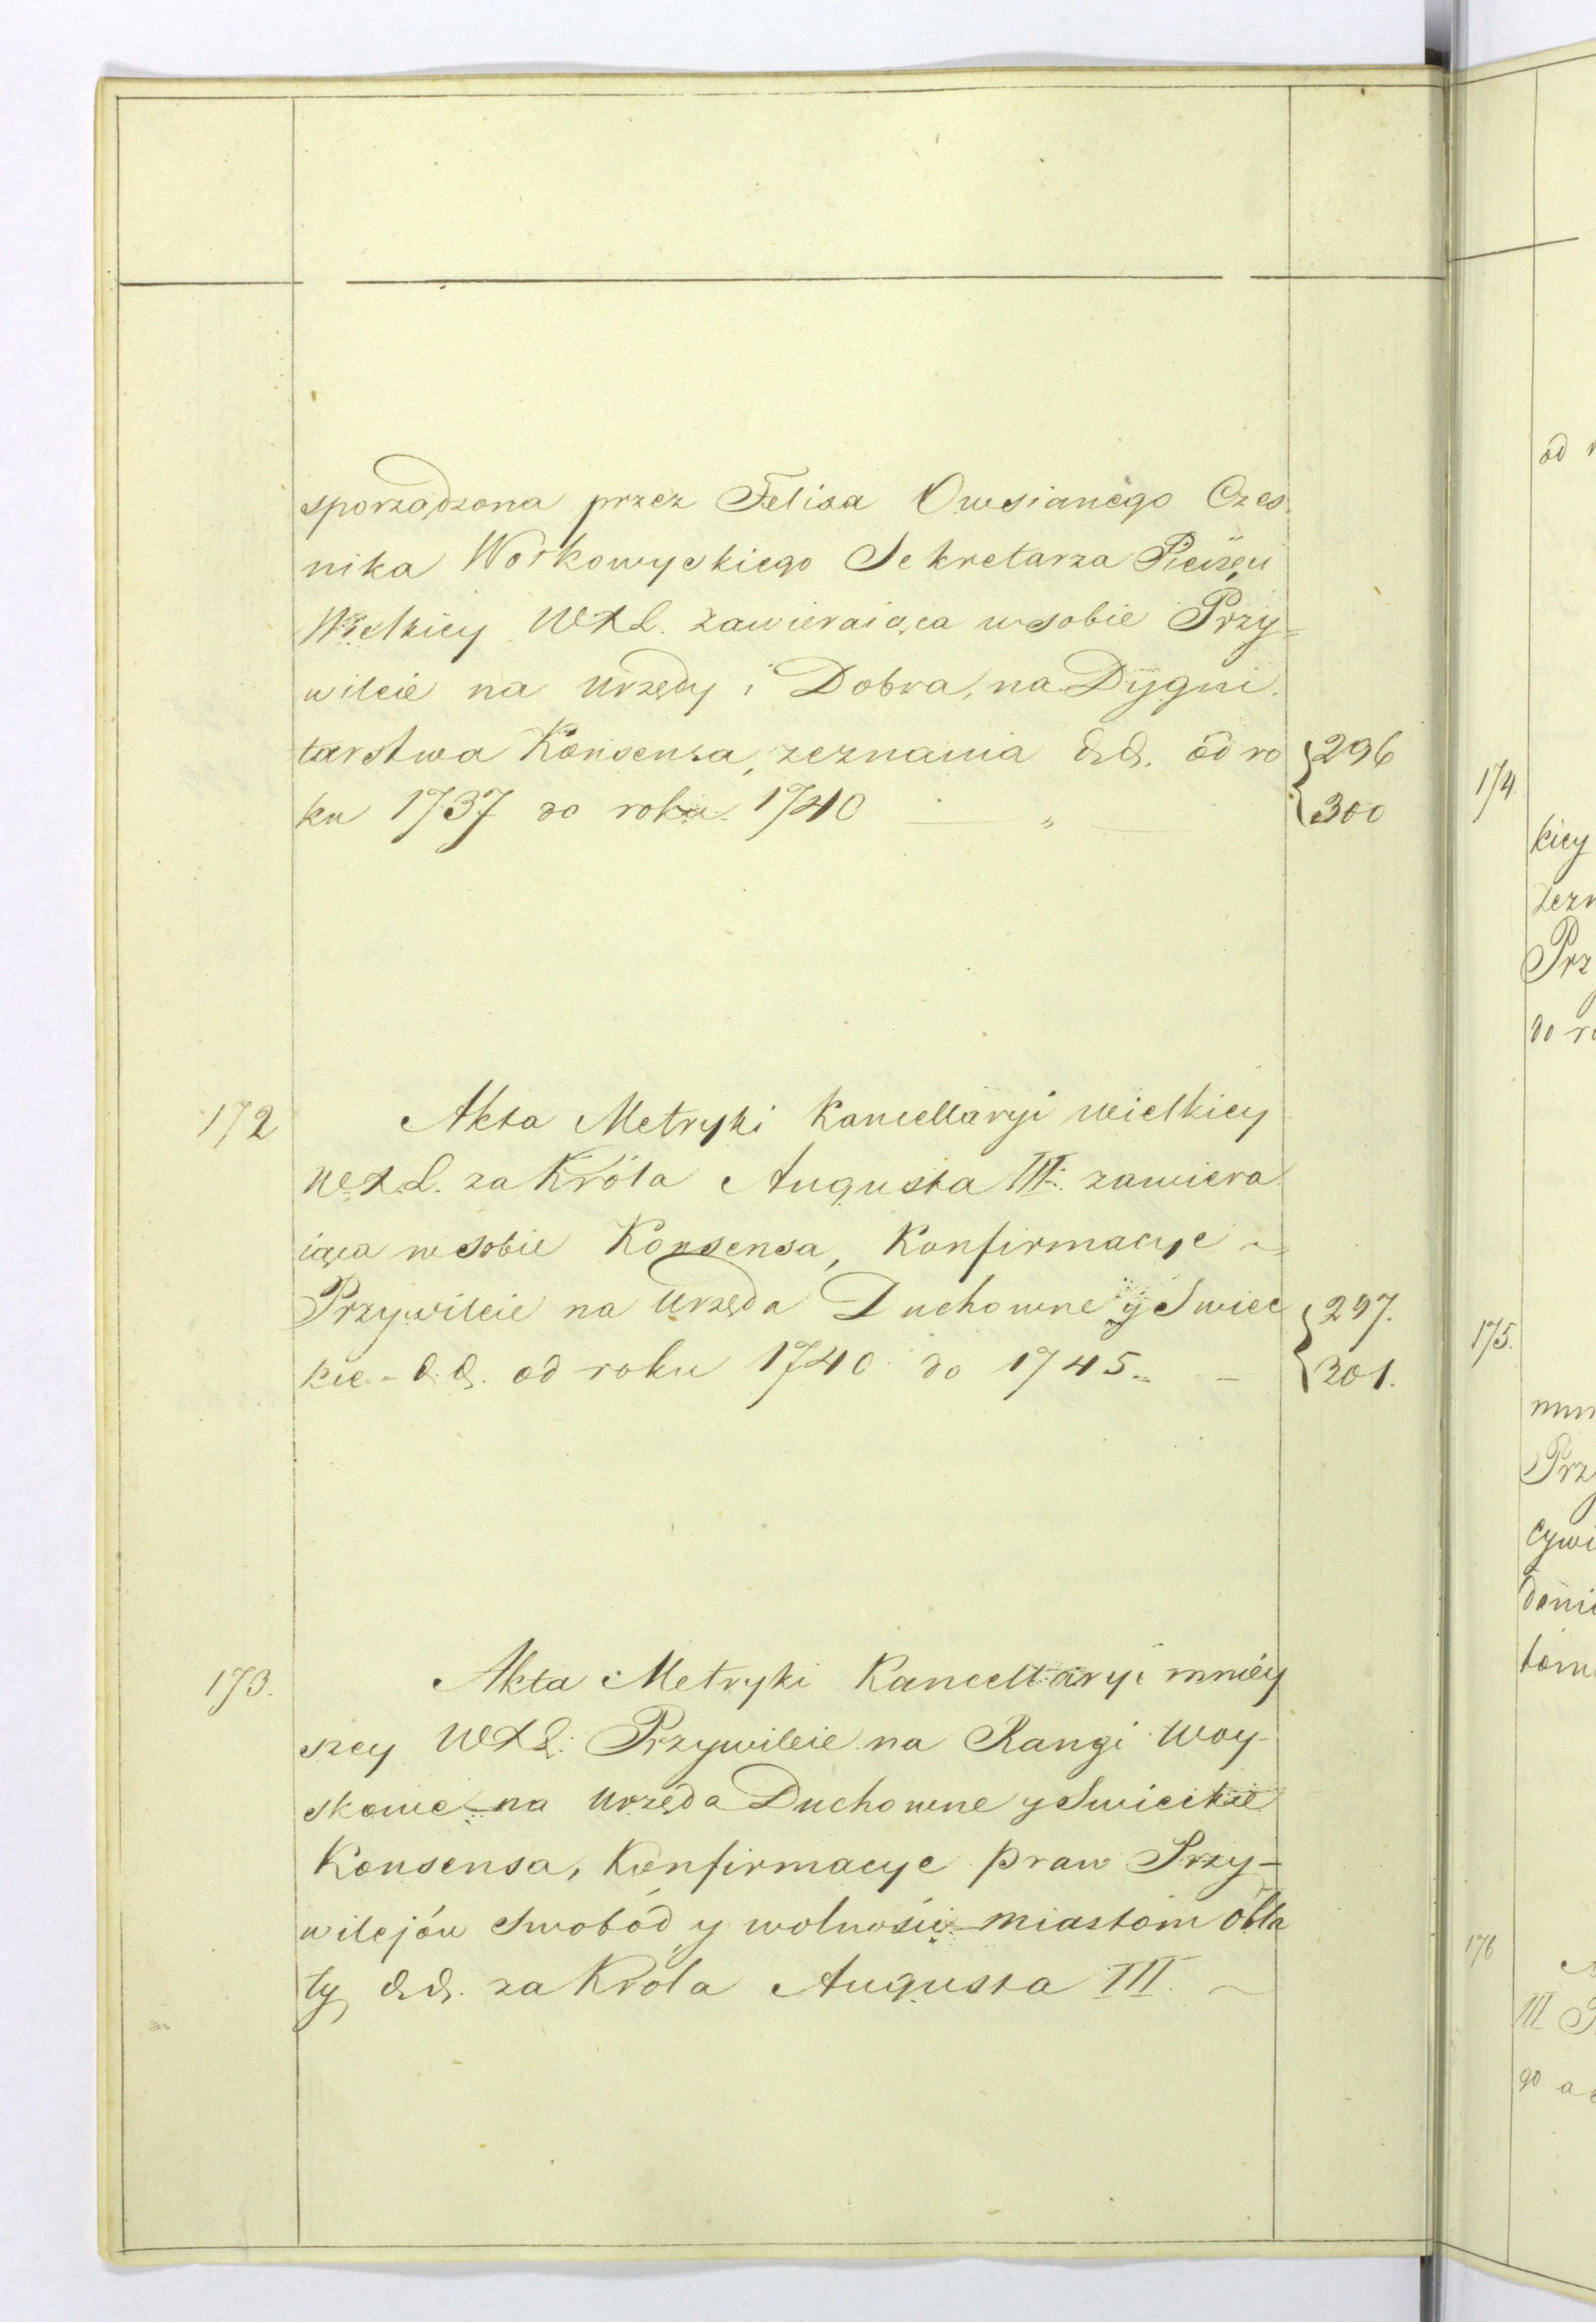 sporządzona przez Felixa Owsianego Czes
nika Wołkowyskiego Sekretarza Pieczęci
Wielkiey WXL. zawieraiąca w sobie Przy=
wileie na urzędy i Dobra, na Dygni
tarstwa Konsensa, zeznania &.&. od ro {296
ku 1737 do roku 1740 — „ — {300
172 Akta Metryki Kancellaryi wielkiey
WXL. za Króla Augusta III. zawiera
iąca w sobie Konsensa, Konfirmacye
Przywileie na Urzęda Duchowne y Swiec {297.
kie - &.&. od roku 1740 do 1745. — {301.
173. Akta Metryki Kancellaryi mniey
szey WXL. Przywileie na Rangi Woy-
skowe na urzęda Duchowne y Swieckie
Konsensa, Konfirmacye praw Przy-
wilejów Swobód y wolności miastom obla
ty &.&. za Króla Augusta III. ~
174.
175.
176
od
kiey
zezn
Prz
do ro
Prz
Cywi
III
go a